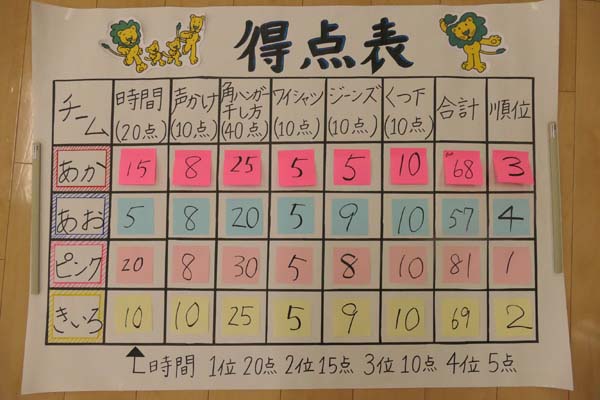 得点表
チーム 時間(20点) 声かけ(10点) 角ハンガー干し方(40点) ワイシャツ(10点) ジーンズ(10点) くつ下(10点) 合計 順位
あか 15 8 25 5 5 10 68 3
あお 5 8 20 5 9 10 57 4
ピンク 20 8 30 5 8 10 81 1
きいろ 10 10 25 5 9 10 69 2
時間 1位 20点 2位 15点 3位 10点 4位 5点